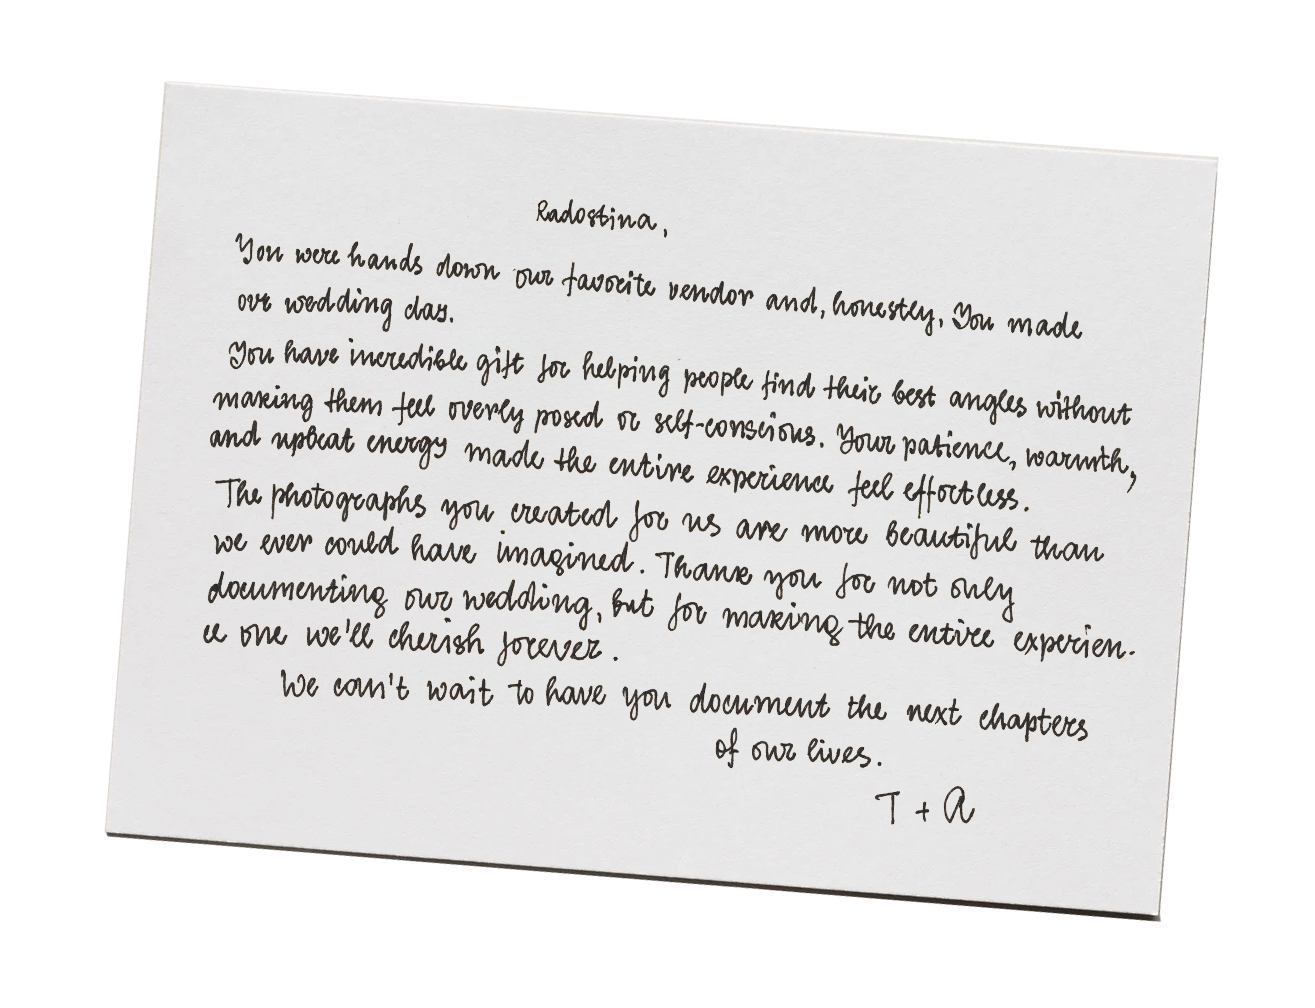 Radostina,
You were hands down our favorite vendor and, honestly, you made
our wedding day.
You have incredible gift for helping people find their best angles without
making them feel overly posed or self-conscious. Your patience, warmth,
and upbeat energy made the entire experience feel effortless.
The photographs you created for us are more beautiful than
we ever could have imagined. Thank you for not only
documenting our wedding, but for making the entire experien-
ce one we'll cherish forever.
We can't wait to have you document the next chapters
of our lives.
T + A